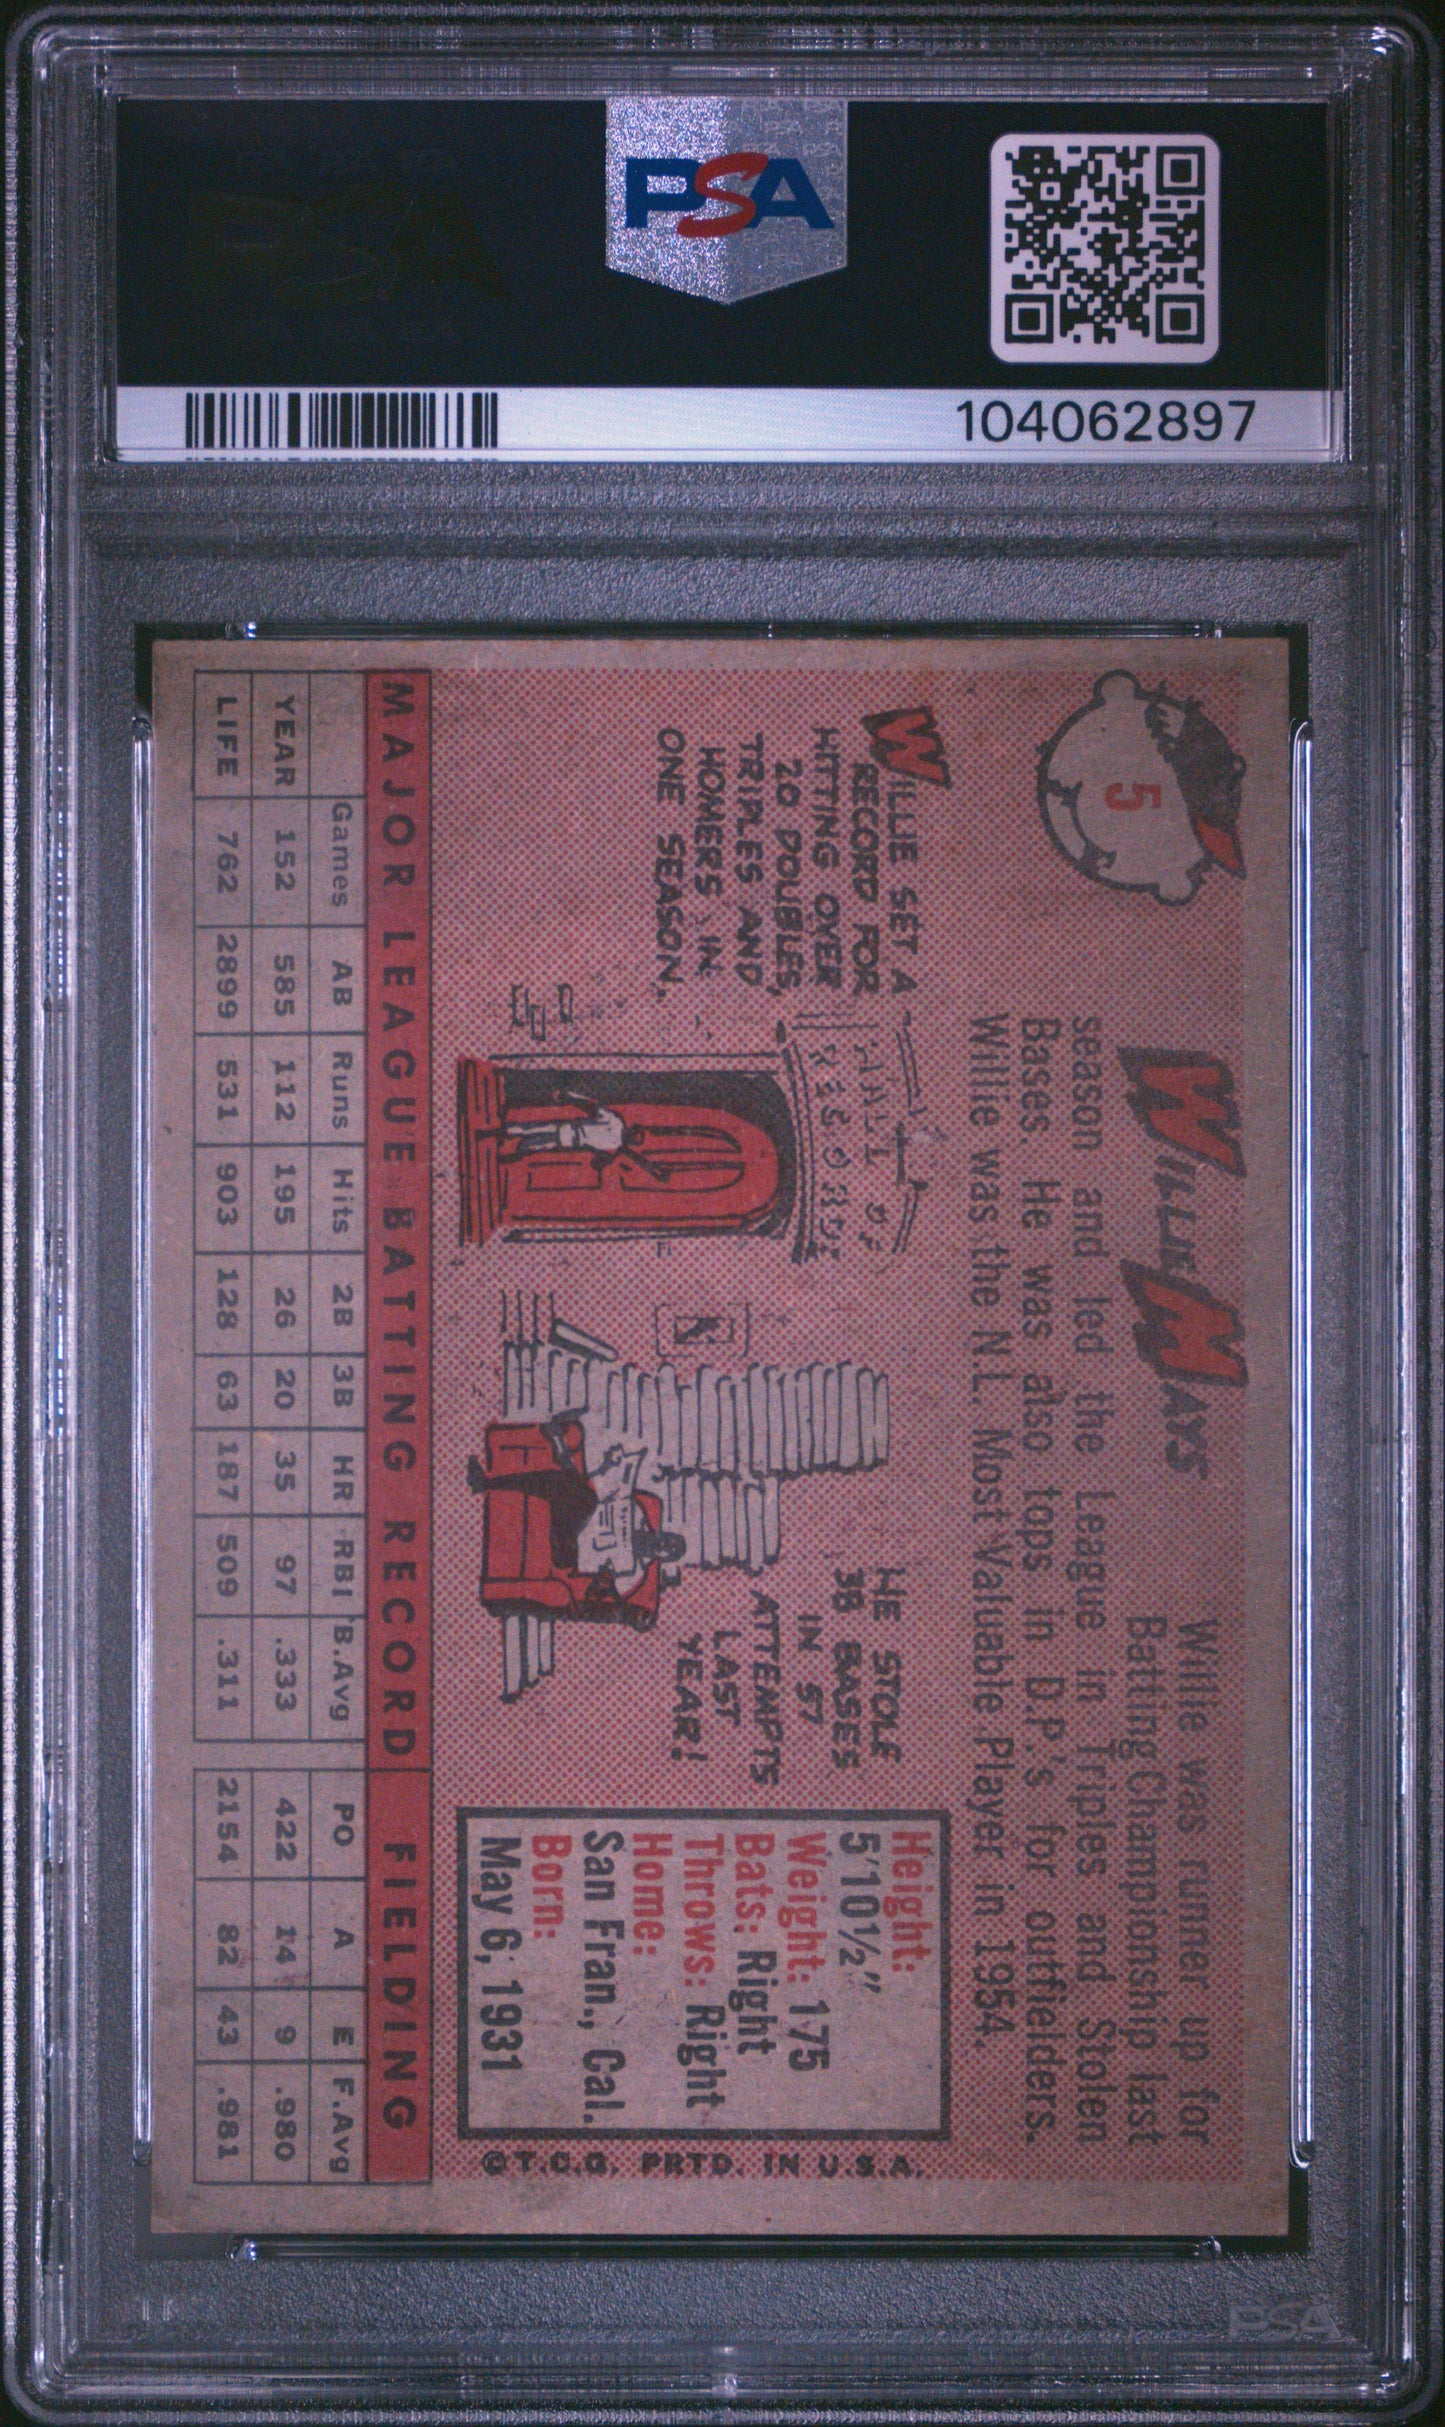 PSA
104062897
5
WILLIE MAYS
Willie was runner up for
Batting Championship last
season and led the League in Triples and Stolen
Bases. He was also tops in D.P.'s for outfielders.
Willie was the N.L. Most Valuable Player in 1954.
WILLIE SET A
RECORD FOR
HITTING OVER
20 DOUBLES,
TRIPLES AND
HOMERS IN
ONE SEASON.
HALL OF
RECORDS
HE STOLE
38 BASES
IN 57
ATTEMPTS
LAST
YEAR!
Height:
5'10½"
Weight: 175
Bats: Right
Throws: Right
Home:
San Fran., Cal.
Born:
May 6, 1931
©T.C.G. PRTD. IN U.S.A.
MAJOR LEAGUE BATTING RECORD FIELDING
Games AB Runs Hits 2B 3B HR RBI B.Avg PO A E F.Avg
YEAR 152 585 112 195 26 20 35 97 .333 422 14 9 .980
LIFE 762 2899 531 903 128 63 187 509 .311 2154 82 43 .981
PSA